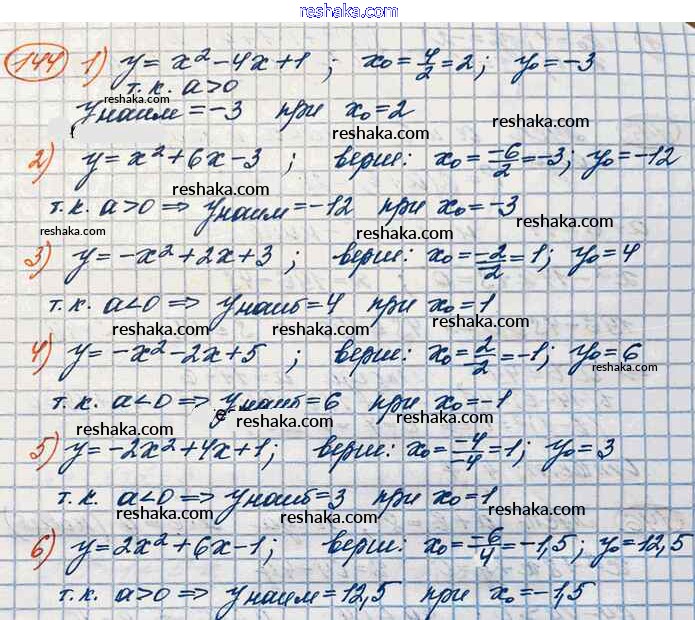 reshaka.com
144 1) y = x² - 4x + 1 ; x₀ = 4/2 = 2; y₀ = -3
т.к. a>0
reshaka.com
yнаим = -3 при x₀ = 2
reshaka.com
2) y = x² + 6x - 3 ; верш: x₀ = -6/2 = -3; y₀ = -12
reshaka.com
т.к. a>0 ⇒ yнаим = -12 при x₀ = -3
reshaka.com reshaka.com reshaka.com
3) y = -x² + 2x + 3 ; верш: x₀ = -2/-2 = 1; y₀ = 4
т.к. a<0 ⇒ yнаиб = 4 при x₀ = 1
reshaka.com reshaka.com reshaka.com
4) y = -x² - 2x + 5 ; верш: x₀ = 2/-2 = -1; y₀ = 6
reshaka.com
т.к. a<0 ⇒ yнаиб = 6 при x₀ = -1
reshaka.com reshaka.com reshaka.com
5) y = -2x² + 4x + 1; верш: x₀ = -4/-4 = 1; y₀ = 3
т.к. a<0 ⇒ yнаиб = 3 при x₀ = 1
reshaka.com reshaka.com reshaka.com
6) y = 2x² + 6x - 1; верш: x₀ = -6/4 = -1,5; y₀ = 12,5
reshaka.com reshaka.com reshaka.com
т.к. a>0 ⇒ yнаим = 12,5 при x₀ = -1,5